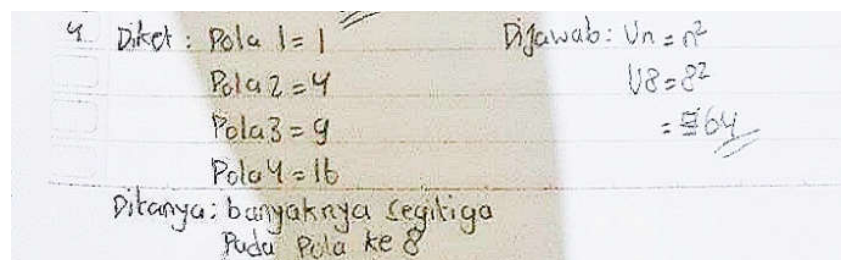 4. Diket : Pola 1 = 1
Pola 2 = 4
Pola 3 = 9
Pola 4 = 16
Ditanya : banyaknya segitiga
Pada Pola ke 8
Dijawab : Un = n²
U8 = 8²
= 64